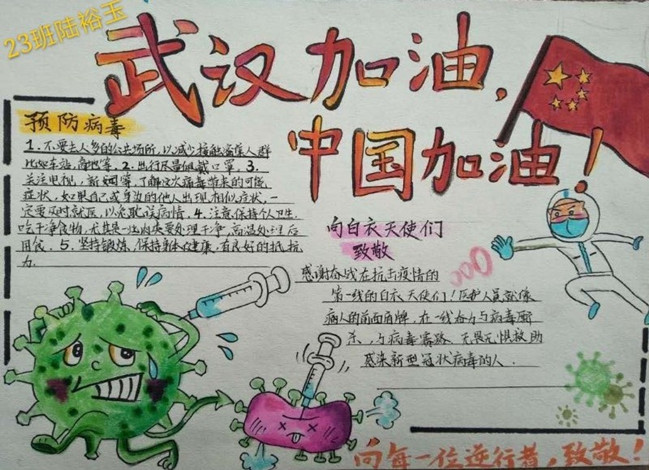 23班陆裕玉
武汉加油，
中国加油！
预防病毒
1、不要去人多的公共场所，以减少接触密集人群
比如车站，商地等，2、出行尽量佩戴口罩，3、
关注电视，新闻等，了解这次病毒带来的可能
症状，如果自己或身边的他人出现相似症状，一
定要及时就医，以免耽误病情，4、注意保持个人卫生，
吃干净食物，尤其是一些肉类要处理干净，高温处理后
用食，5、坚持锻炼，保持身体健康，有良好的抵抗
力。
向白衣天使们
致敬
感谢奋战在抗击疫情的
第一线的白衣天使们！医护人员就像
病人的前面盾牌，在一线奋力与病毒厮
杀，与病毒 无畏无惧救助
感染新型冠状病毒的人。
向每一位逆行者，致敬！